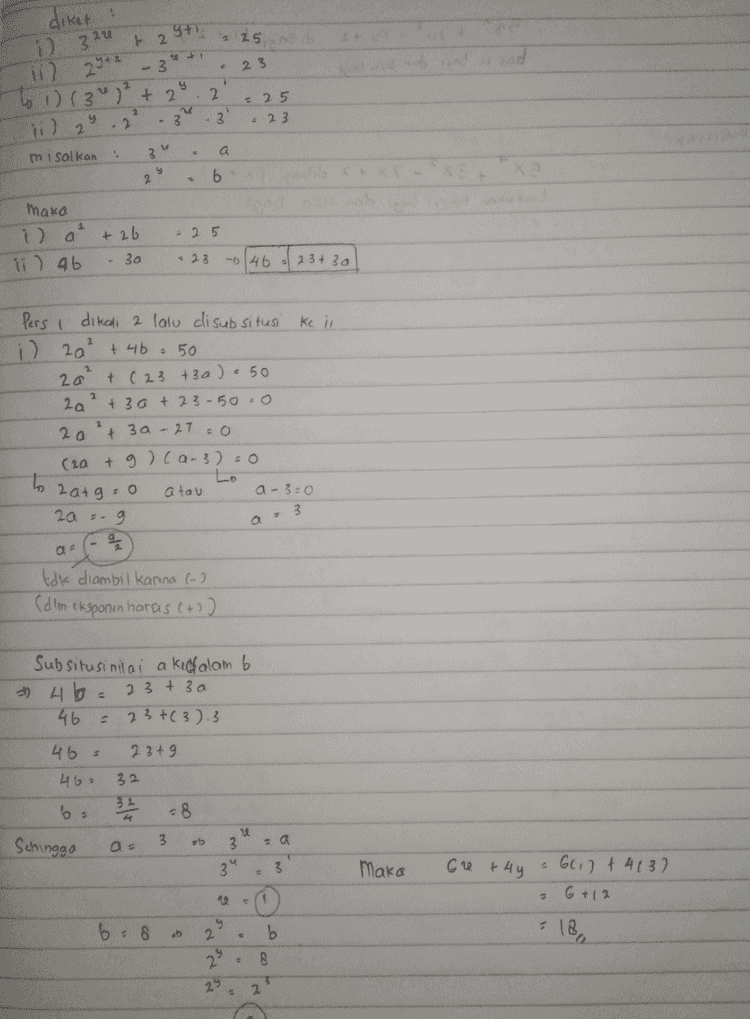 diket :
i) 3^2x + 2^y+1 = 25
ii) 2^y+2 - 3^x+1 = 23
↳ i) (3^x)^2 + 2^y . 2^1 = 25
ii) 2^y . 2^2 - 3^x . 3^1 = 23
misalkan : 3^x = a
2^y = b
Maka
i) a^2 + 2b = 25
ii) 4b - 3a = 23 → 4b = 23 + 3a
Pers i dikali 2 lalu disubsitusi ke ii
i) 2a^2 + 4b = 50
2a^2 + (23 + 3a) = 50
2a^2 + 3a + 23 - 50 = 0
2a^2 + 3a - 27 = 0
(2a + 9) (a - 3) = 0
↳ 2a + 9 = 0 atau ↳ a - 3 = 0
2a = - 9 a = 3
a = - 9/2
tdk diambil karina (-)
(dlm eksponin harus (+))
Subsitusi nilai a kedalam b
⇒ 4b = 23 + 3a
4b = 23 + (3) . 3
4b = 23 + 9
4b = 32
b = 32/4 = 8
Sehingga a = 3 ⇒ 3^x = a
3^x = 3^1
x = 1
b = 8 ⇒ 2^y = b
2^y = 8
2^y = 2^3
Maka 6x + 4y = 6(1) + 4(3)
= 6 + 12
= 18